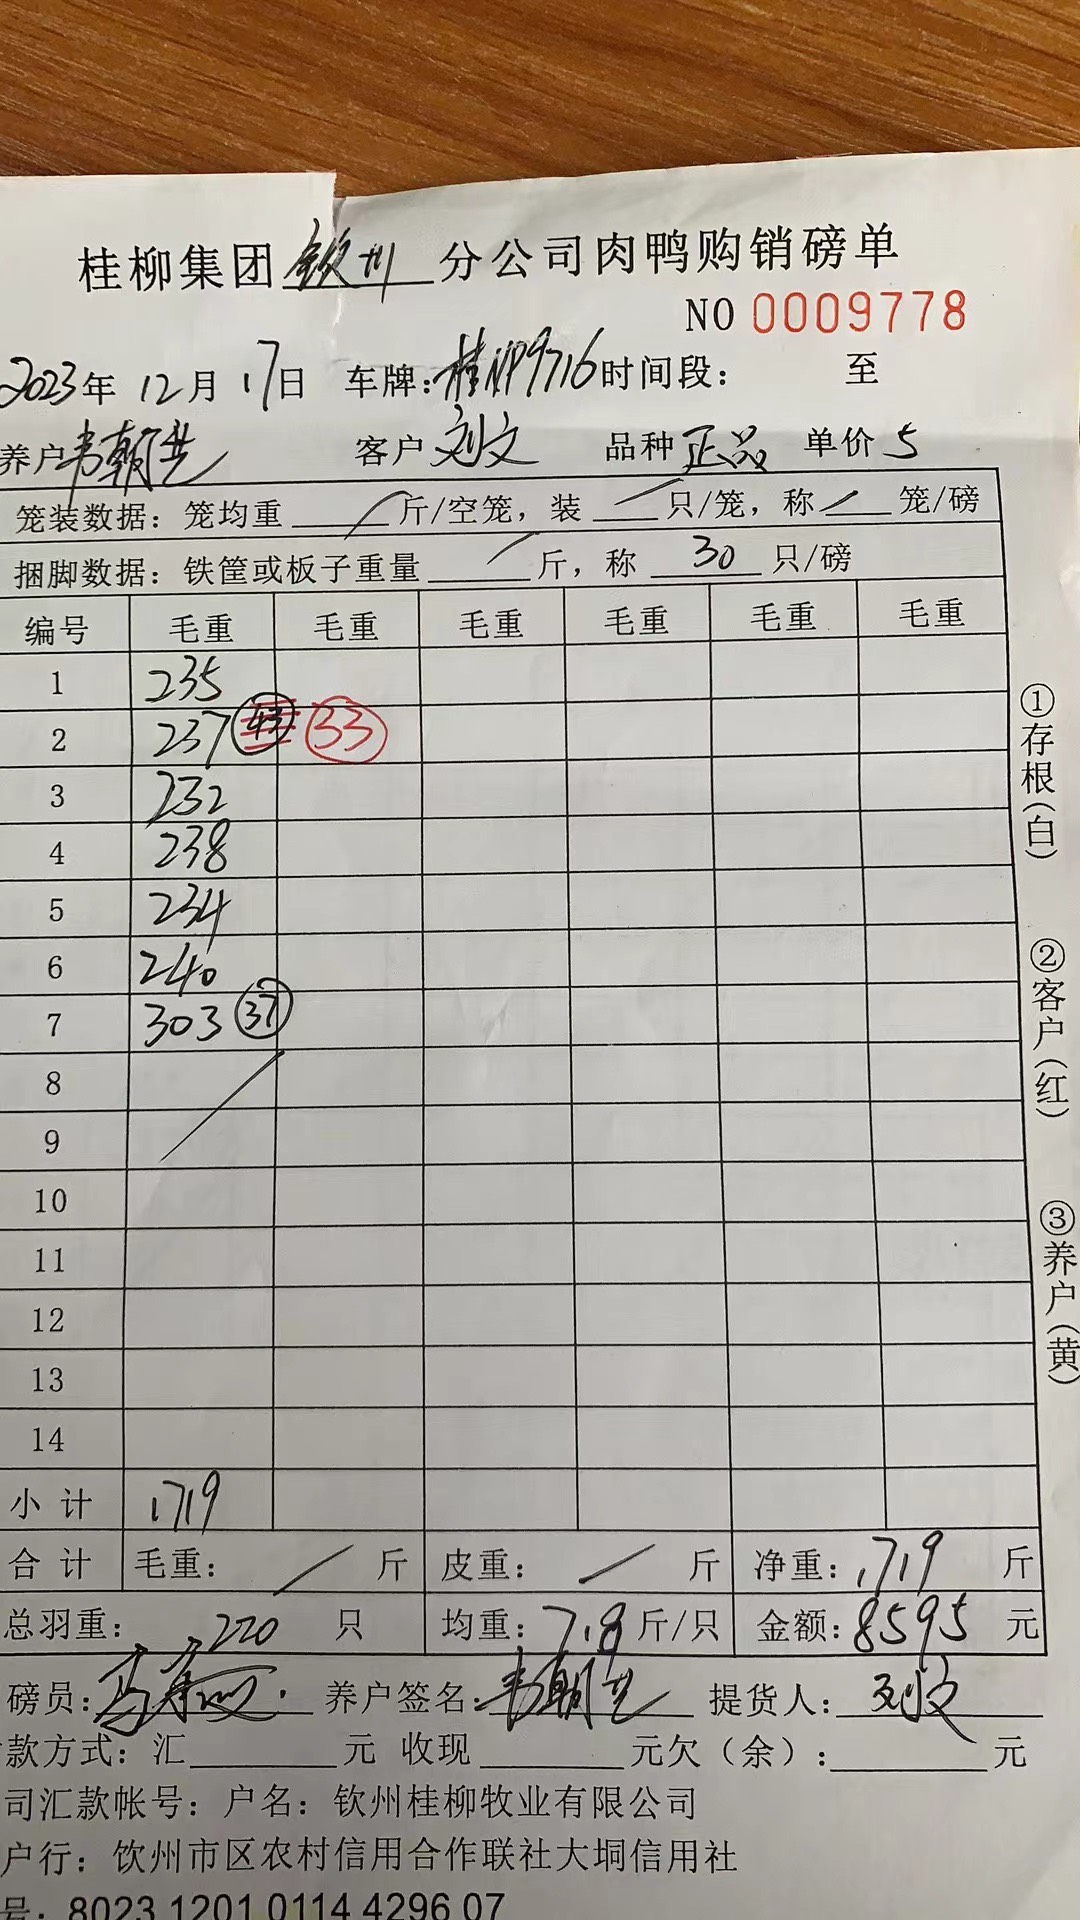 桂柳集团钦州分公司肉鸭购销磅单
NO 0009778
2023年 12月 17日 车牌:桂NP9716 时间段: 至
养户韦朝 客户 刘文 品种 正品 单价 5
笼装数据: 笼均重 / 斤/空笼, 装 / 只/笼, 称 / 笼/磅
捆脚数据: 铁筐或板子重量 / 斤, 称 30 只/磅
编号 毛重 毛重 毛重 毛重 毛重 毛重
1 235
2 237 43 33
3 232
4 238
5 234
6 240
7 303 37
8
9
10
11
12
13
14
小 计 1719
合 计 毛重: / 斤 皮重: / 斤 净重: 1719 斤
总羽重: 220 只 均重: 7.8 斤/只 金额: 8595 元
磅员: 养户签名: 韦朝 提货人: 刘文
款方式: 汇 元 收现 元欠(余): 元
司汇款帐号: 户名: 钦州桂柳牧业有限公司
户行: 钦州市区农村信用合作联社大垌信用社
号: 8023 1201 0114 4296 07
①存根(白)
②客户(红)
③养户(黄)